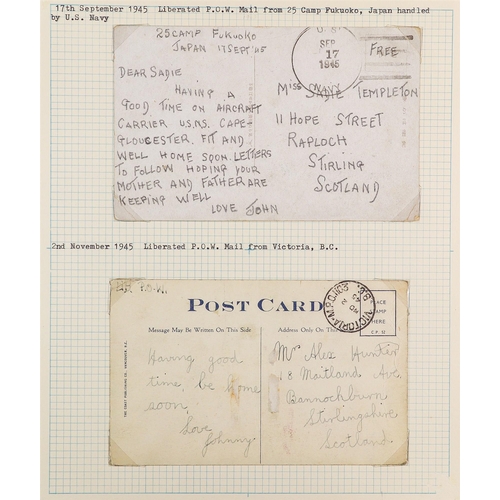 17th September 1945 Liberated P.O.W. Mail from 25 Camp Fukuoko, Japan handled
by U.S. Navy
25 CAMP FUKUOKO
JAPAN 17 SEPT '45
DEAR SADIE
HAVING A
GOOD TIME ON AIRCRAFT
CARRIER U.S.N.S. CAPE-
GLOUCESTER. FIT AND
WELL HOME SOON. LETTERS
TO FOLLOW HOPING YOUR
MOTHER AND FATHER ARE
KEEPING WELL
LOVE JOHN
U.S.
SEP
17
1945
NAVY
FREE
MISS SADIE TEMPLETON
11 HOPE STREET
RAPLOCH
STIRLING
SCOTLAND
2nd November 1945 Liberated P.O.W. Mail from Victoria, B.C.
P.O.W.
POST CARD
Message May Be Written On This Side
Address Only On This
VICTORIA·M.P.O.1103 B.C.
PLACE
STAMP
HERE
Having good
time, be home
soon.
Love
Johnny.
Mr Alex Hunter
18 Maitland Ave.
Bannockburn
Stirlingshire
Scotland